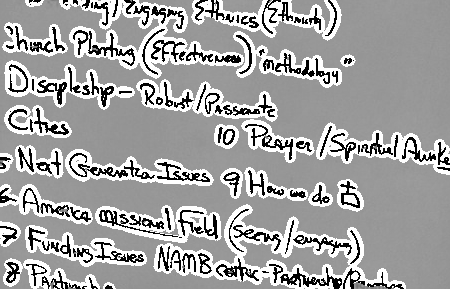 / Engaging Ethnics (Ethnicity)
Church Planting (Effectiveness) "methodology"
Discipleship - Robust / Passionate
Cities
10 Prayer / Spiritual Awake
5 Next Generation Issues
9 How we do
6 America missional Field (seeing / engaging)
7 Funding Issues
NAMB centric - Partnership /
8